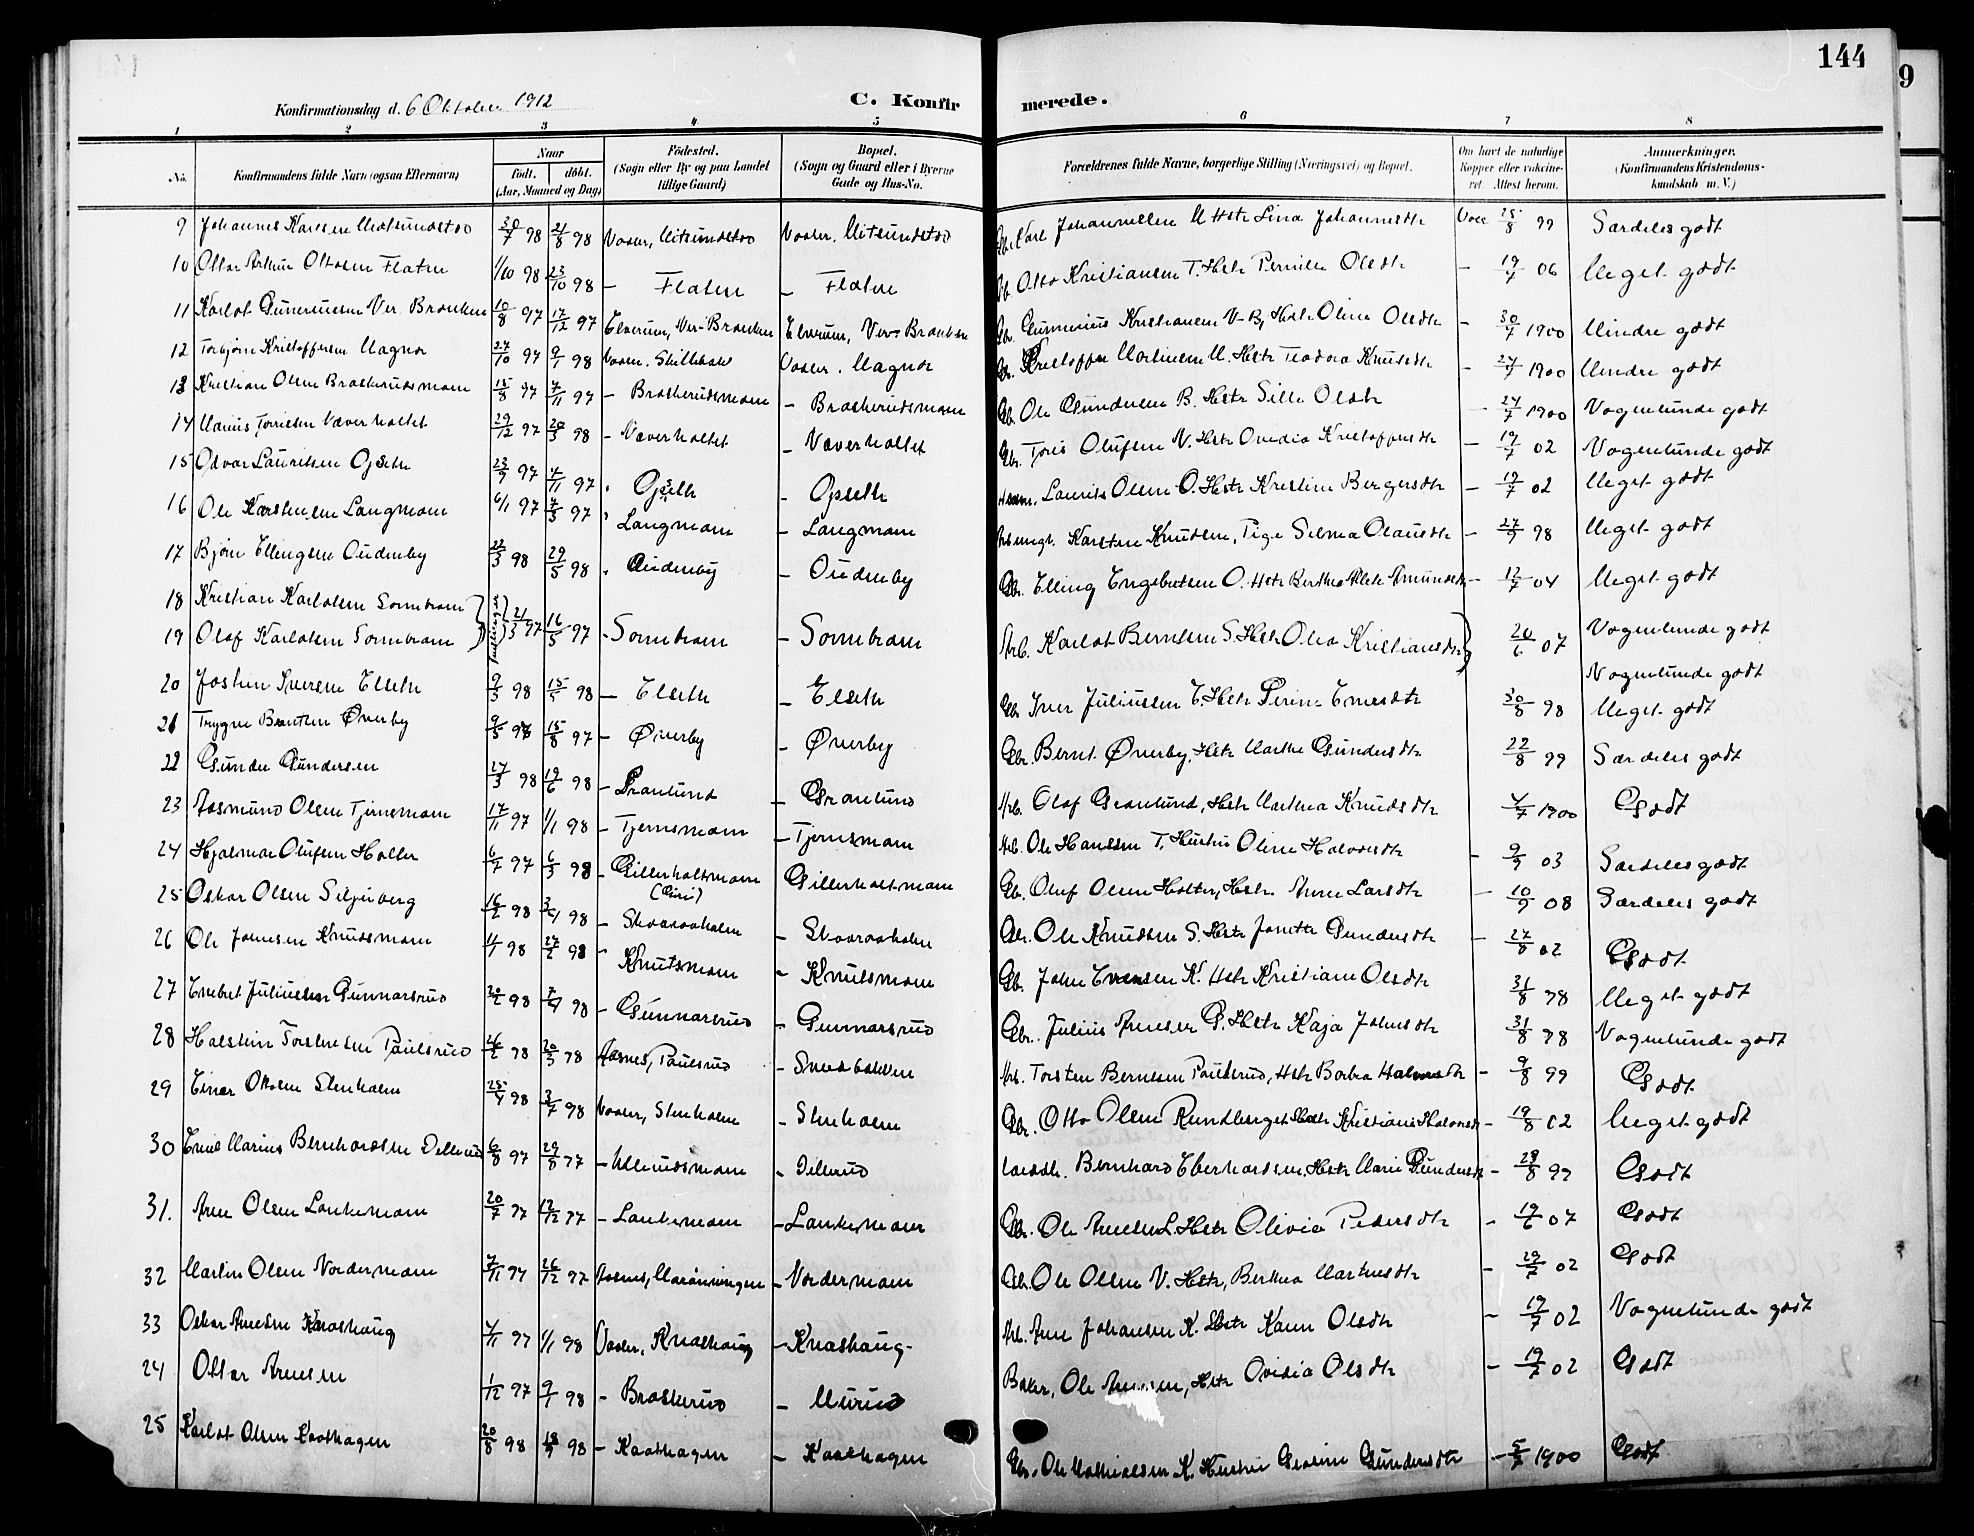 144
9
Konfirmationsdag d. 6 Oktober 1912 C. Konfirmerede.
1 2 3 4 5 6 7 8
No. Konfirmandens fulde Navn (ogsaa Efternavn) Naar født. døbt. (Aar, Maaned og Dag) Fødested. (Sogn eller By og paa Landet tillige Gaard) Bopæl. (Sogn og Gaard eller i Byerne Gade og Hus-No. Forældrenes fulde Navne, borgerlige Stilling (Næringsvei) og Bopæl. Om havt de naturlige Kopper eller vakcineret. Attest herom. Anmærkninger. (Konfirmandens Kristendomskundskab m. V.)
9 Johannes Karlsen Mitsundstad 98 21/8 98 Vaaler, Mitsundstad Vaaler. Mitsundstad Karl Johannessen M Hstr Lina Johannesdtr Vacc 25/8 99 Særdeles godt
10 Ottar Arthur Ottosen Flaten 1/10 98 23/10 98 – Flaten – Flaten Otto Kristiansen F. Hstr Pernille Olsdtr – 19/7 06 Meget godt
11 Karlot Guneriussen Ver. Braaten 10/8 97 17/12 97 Elverum, Ver-Braaten Elverum, Ver-Braaten Gbr. Gunnerius Kristiansen V-B, Hstr Oline Olsdtr – 30/7 1900 Mindre godt
12 Torbjørn Kristoffersen Magnor 27/10 97 9/1 98 Vaaler. Vaaler. Magnor Gbr. Kristoffer Martinsen M. Hstr Teodora Knudsdtr – 27/7 1900 Mindre godt
13 Kristian Olsen Braskerudsmoen 15/8 97 7/11 97 – Braskerudsmoen – Braskerudsmoen Gbr. Ole Gundersen B. Hstr Sille Olsdtr – 27/7 1900 Nogenlunde godt
14 Marius Tørrissen Væverholtet 29/12 97 20/3 98 – Væverholtet – Væverholtet Gbr. Tøris Olufsen V. Hstr Ovidia Kristoffersdtr – 19/7 02 Nogenlunde godt
15 Odvar Lauritsen Opseth 23/9 97 7/11 97 Opseth – Opseth Laurits Olsen O. Hstr Kristine Bergersdtr – 19/7 02 Meget godt
16 Ole Karstensen Langmoen 6/1 97 7/3 97 Langmoen – Langmoen Karsten Knudsen, Pige Selma Olausdtr – 27/9 98 Meget godt
17 Bjørn Ellingsen Oudenby 22/3 98 29/5 98 Oudenby – Oudenby Gbr. Elling Engebretsen O. Hstr Berthe Amundsdtr – 12/7 04 Meget godt
18 Kristian Karlotsen Sormbroen
19 Olaf Karlotsen Sormbroen 21/3 97 16/5 97 – Sormbroen – Sormbroen Arb. Karlot Berntsen S. Hstr Olea Kristiansdtr 20/6 07 Nogenlunde godt
Nogenlunde godt
20 Jostein Iversen Elseth 9/3 98 98 – Elseth – Elseth Gbr Iver Juliussen E. Hstr Perine Enersdtr 30/8 98 Meget godt
21 Trygve Berntsen Øverby 9/5 97 15/8 97 – Øverby – Øverby Gbr. Bernt Øverby, Hstr Marthe Gundersdtr 22/8 99 Særdeles godt
22 Gunder Gundersen 27/3 98 19/6 98 – Granlund – Granlund Arb. Olaf Granlund, Hstr Marthea Knudsdtr 1900 Godt
23 Aasmund Olsen Tjernsmoen 17/11 97 1/1 98 – Tjernsmoen – Tjernsmoen Arb. Ole Hanssen T. Hustru Oline Halvorsdtr – 9/9 03 Særdeles godt
24 Hjalmar Olufsen Holter 6/7 97 6/3 98 – Gillerholtsmoen Gillerholtsmoen Gb. Oluf Olsen Holter, Hstr. Anne Larsdtr – 10/9 08 Særdeles godt
25 Oskar Olsen Seljeberg 16/2 98 98 – Skaaraaholen – Skaaraaholen Gbr. Ole Knudsen S. Hstr Janette Gundersdtr – 27/8 02 Godt
26 Ole Johnsen Knudsmoen 98 27/2 98 – Knutsmoen – Knutsmoen Gb. John Evensen K. Hstr Kristiane Olsdtr 31/8 98 Meget godt
27 Enebret Juliussen Gunnarsrud 20/2 98 98 – Gunnarsrud – Gunnarsrud Gbr. Julius Arnesen G. Hstr Kaja Johnsdtr 31/8 98 Nogenlunde godt
28 Halstein Torstensen Paulsrud 26/2 98 20/3 98 Aasnes, Paulsrud – Snedbakken Arb. Torsten Berntsen Paulsrud, Hstr Barbra Halvorsdtr – 9/8 99 Godt
29 Einar Ottosen Stenholen 98 3/7 98 Vaaler, Stenholen – Stenholen Gbr. Otto Olsen Rundberget Hstr Kristiane Halvorsdtr – 19/8 02 Meget godt
30 Emil Marius Bernhardsen Dellerud 6/8 97 29/8 97 – – Dellerud Bernhard Eberhardsen, Hstr Marie Gundersdtr – 28/8 99 Godt
31. Arne Olsen Laukemoen 20/7 97 12/12 97 – Laukemoen – Laukemoen Gbr. Ole Arnesen L. Hstr Olivia Pedersdtr – 19/6 07 Godt
32 Martin Olsen Nordermoen 7/11 97 26/12 97 Aasnes, – Nordermoen Gbr. Ole Olsen N. Hstr, Berthea Martinsdtr – 29/7 02 Godt
33 Oskar Arnesen Knashaug 7/11 97 1/1 98 Vaaler, Knashaug – Knashaug – Arb. Arne Johansen K. Hstr Karen Olsdtr – 19/7 02 Nogenlunde godt
24 Ottar Arnesen 1/12 97 9/1 98 – Braskerud – Murud Baker, Ole Arnesen, Hstr Ovidia Olsdtr – 19/7 02 Godt
25 Karlot Olsen Kaathagen 20/8 98 18/9 98 – Kaathagen – Kaathagen Gbr. Ole Mathiassen K. Hustru Gundersdtr – 1900 Godt